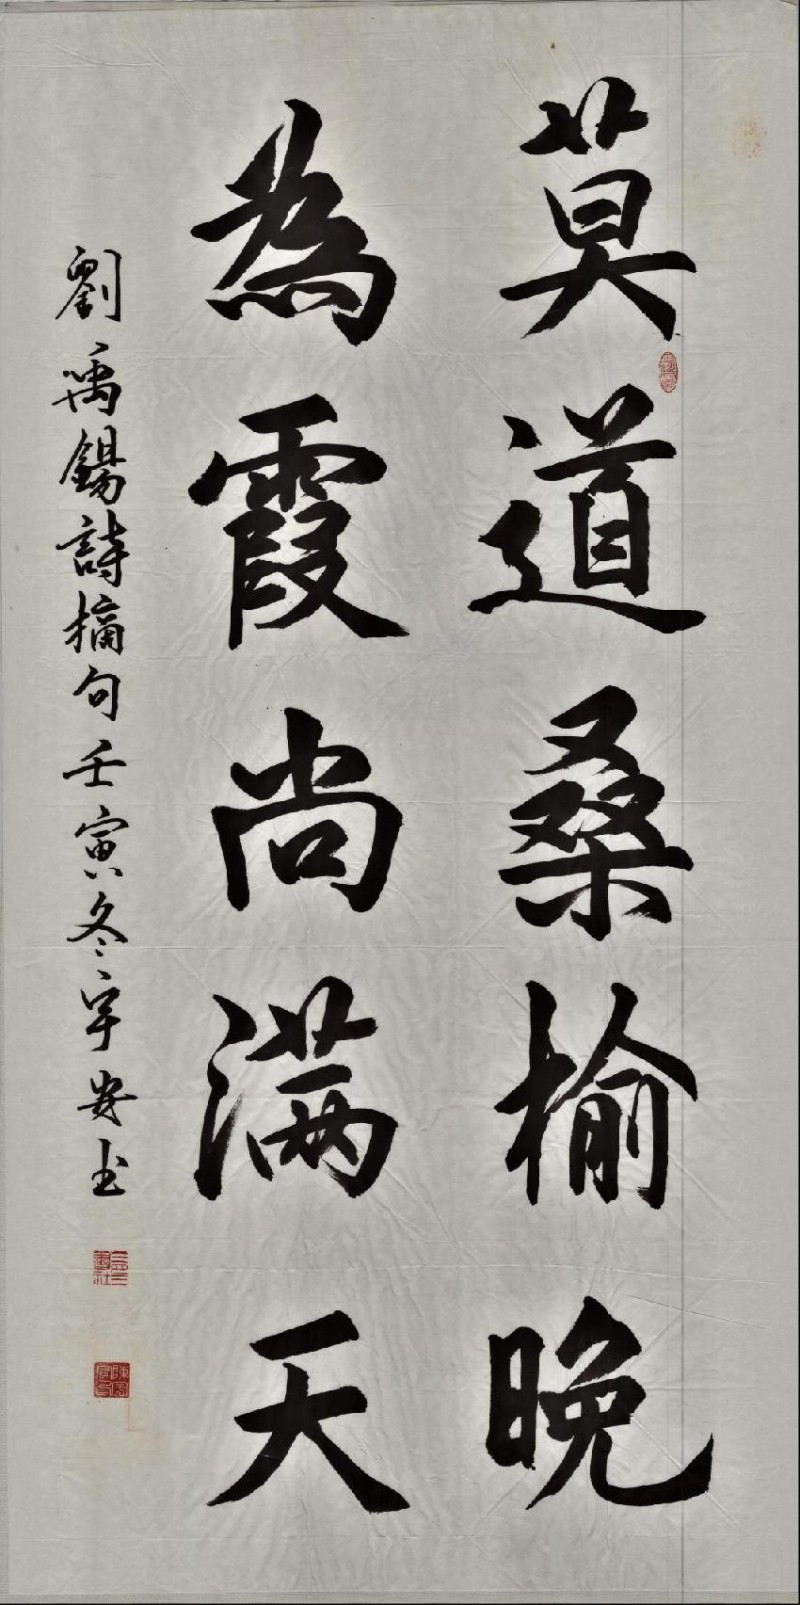 莫道桑榆晚
為霞尚满天
劉禹錫詩摘句壬寅冬宇安书